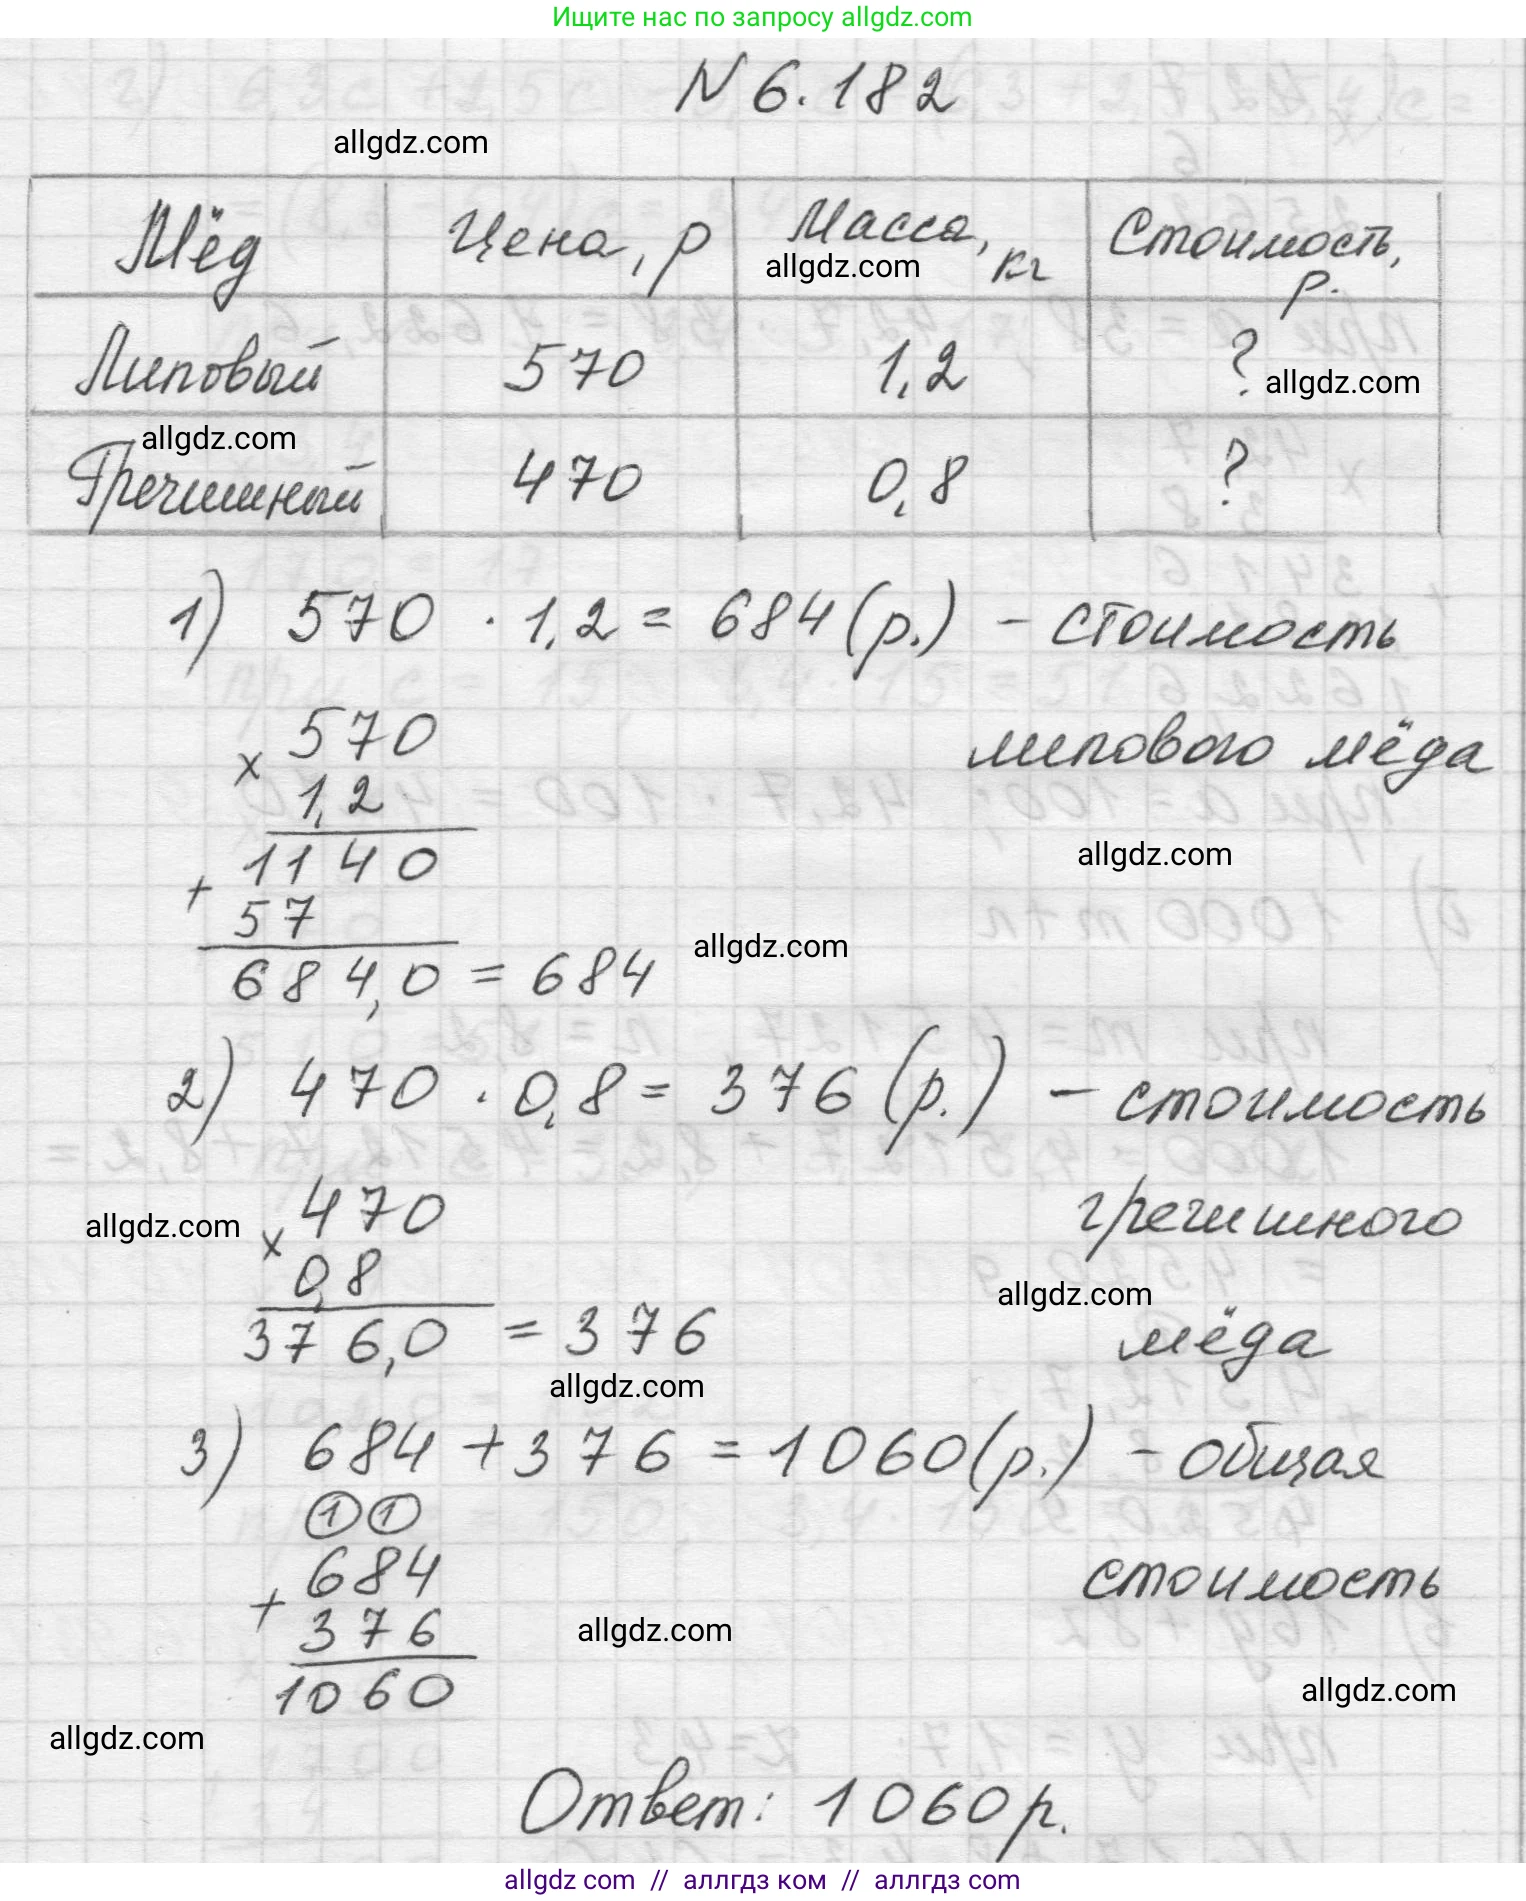 Ищите нас по запросу allgdz.com
N 6.182
allgdz.com
Мёд Цена, р Масса, кг Стоимость, р.
allgdz.com
Липовый 570 1,2 ?
allgdz.com
allgdz.com
Гречишный 470 0,8 ?
1) 570 · 1,2 = 684 (р.) - стоимость
липового мёда
× 570
1,2
1140
+ 57
684,0 = 684
allgdz.com
allgdz.com
2) 470 · 0,8 = 376 (р.) - стоимость
гречишного
мёда
allgdz.com
× 470
0,8
376,0 = 376
allgdz.com
allgdz.com
3) 684 + 376 = 1060 (р.) - общая
стоимость
1 1
684
+ 376
1060
allgdz.com
allgdz.com
allgdz.com
Ответ: 1060 р.
allgdz.com // аллгдз ком // аллгдз.com